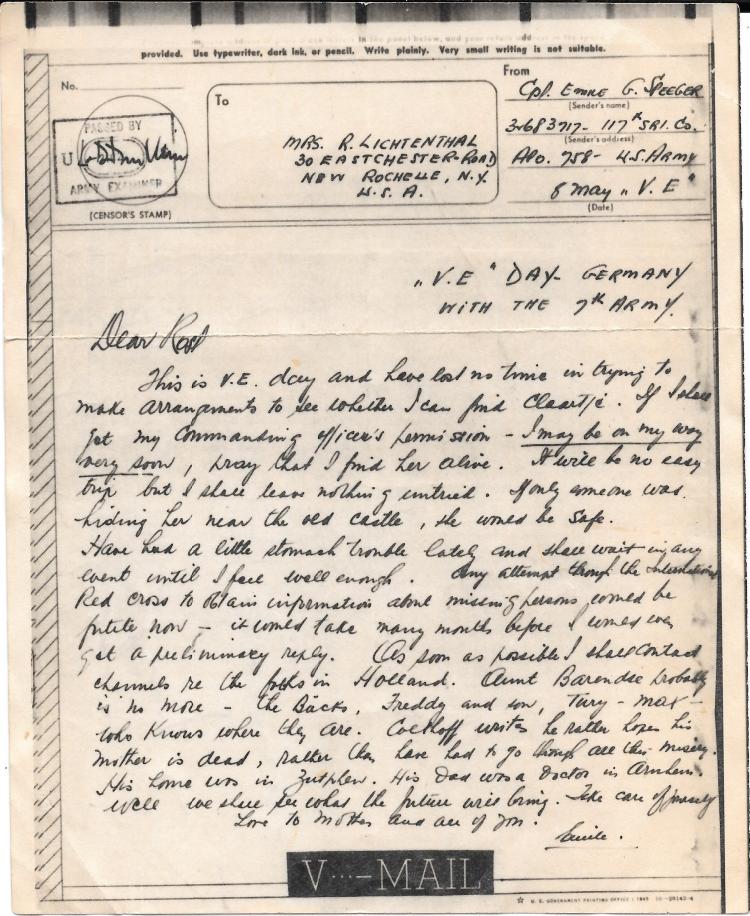 provided. Use typewriter, dark ink, or pencil. Write plainly. Very small writing is not suitable.
No.
PASSED BY
U
ARMY EXAMINER
(CENSOR'S STAMP)
To
MRS. R. LICHTENTHAL
30 EASTCHESTER-ROAD
NEW ROCHELLE, N.Y.
U.S.A.
From
Cpl. EMILE G. SPEEGER
(Sender's name)
32683717- 117th SRI. Co.
(Sender's address)
APO. 758- U.S. ARMY
8 MAY „V.E"
(Date)
„V.E" DAY- GERMANY
WITH THE 7th ARMY.
Dear
This is V.E. day and have lost no time in trying to
make arrangements to see whether I can find Claartje. If I shall
get my commanding officer's permission - I may be on my way
very soon, pray that I find her alive. It will be no easy
trip but I shall leave nothing untried. If only someone was
hiding her near the old castle, she would be safe.
Have had a little stomach trouble lately and shall wait in any
event until I feel well enough. Any attempt through the International
Red Cross to obtain information about missing persons would be
futile now - it would take many months before I would even
get a preliminary reply. As soon as possible I shall contact
channels re the folks in Holland. Aunt Barendse probably
is no more - the Bäcks, Freddy and son, - Max -
who knows where they are. writes he rather hopes his
mother is dead, rather than have had to go through all this misery.
His home was in Zutphen. His Dad was a Doctor in Arnhem.
Well we shall see what the future will bring. Take care of yourself
Love to Mother and all of you.
Emile.
V···–MAIL
☆ U. S. GOVERNMENT PRINTING OFFICE : 1945